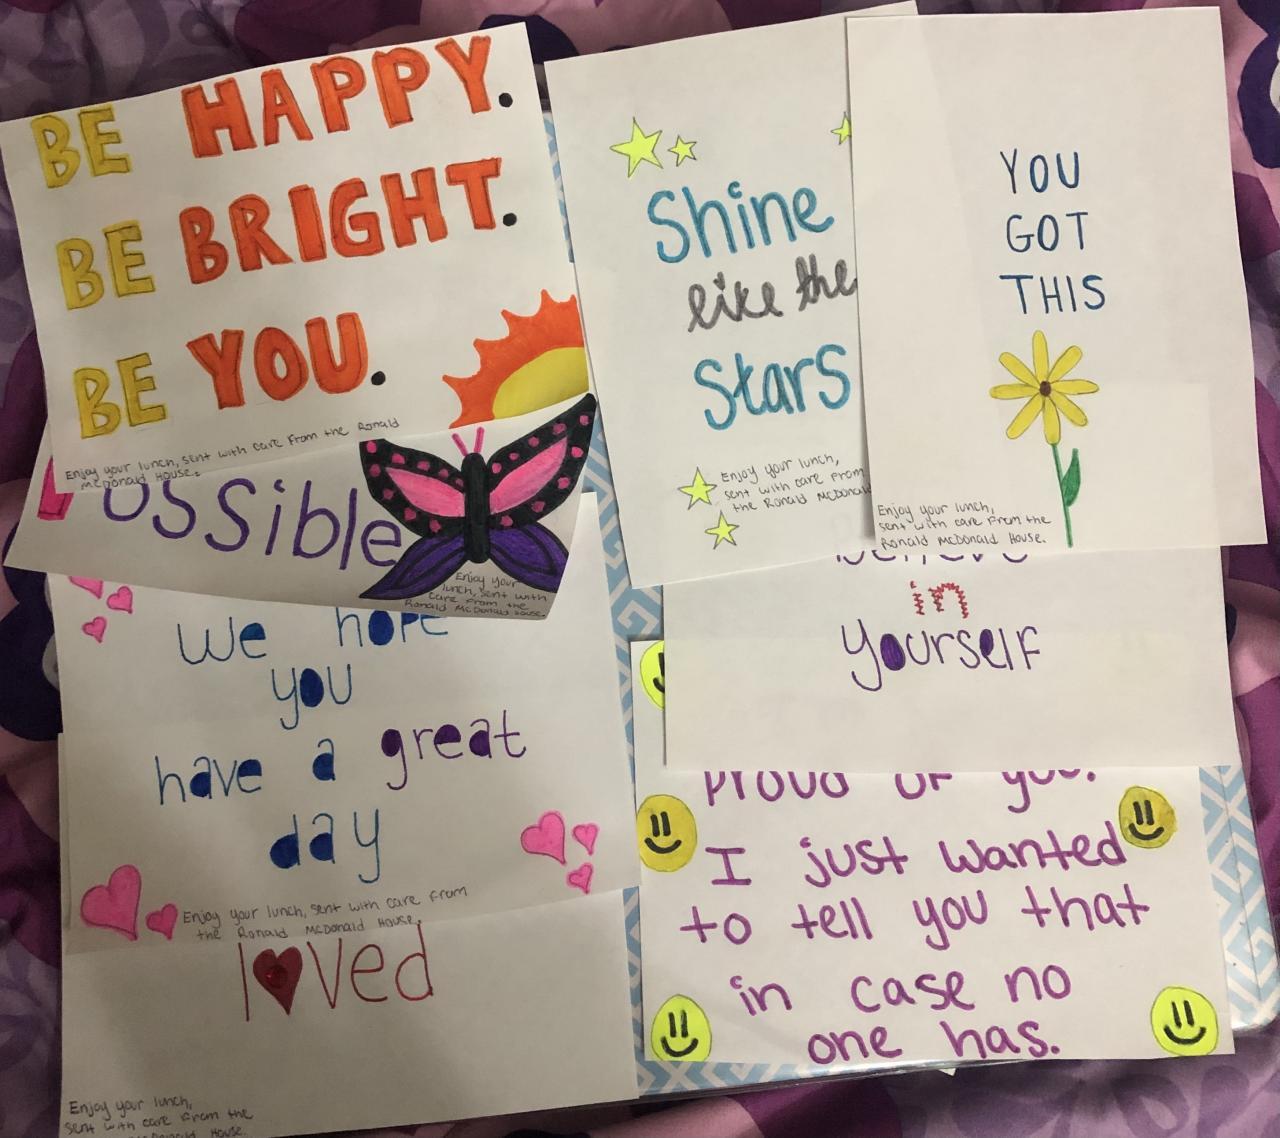 BE HAPPY.
BE BRIGHT.
BE YOU.
Enjoy your lunch, sent with care from the Ronald
McDonald House.
Shine
like the
Stars
Enjoy your lunch,
sent with care from
the Ronald McDonald
YOU
GOT
THIS
Enjoy your lunch,
sent with care from the
Ronald McDonald House.
ossible
Enjoy your
lunch, sent with
care from the
Ronald McDonald House.
We hope
you
have a great
day
Enjoy your lunch, sent with care from
the Ronald McDonald House.
believe
in
yourself
proud of you.
I just wanted
to tell you that
in case no
one has.
loved
Enjoy your lunch,
sent with care from the
McDonald House.